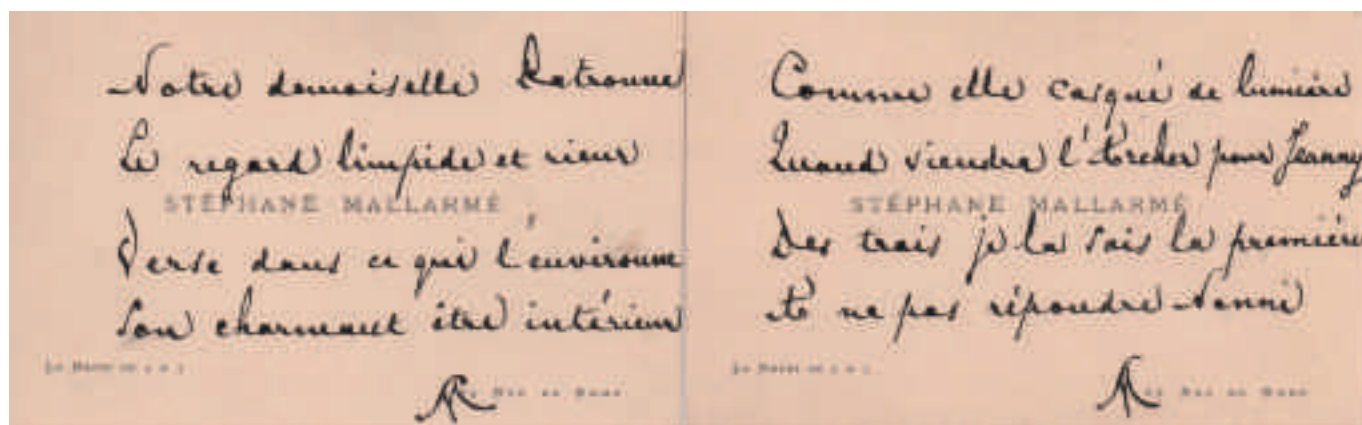 Notre demoiselle Patronne
Le regard limpide et rieur
STÉPHANE MALLARMÉ
Verse dans ce qui l'environne
Son charmant être intérieur
Le Mardi de
Rue de Rome
Comme elle casqué de lumière
Quand viendra l'Archer pour Jeanny
STÉPHANE MALLARMÉ
Des trois je la sais la première
À ne pas répondre Nenni
Le Mardi de
Rue de Rome